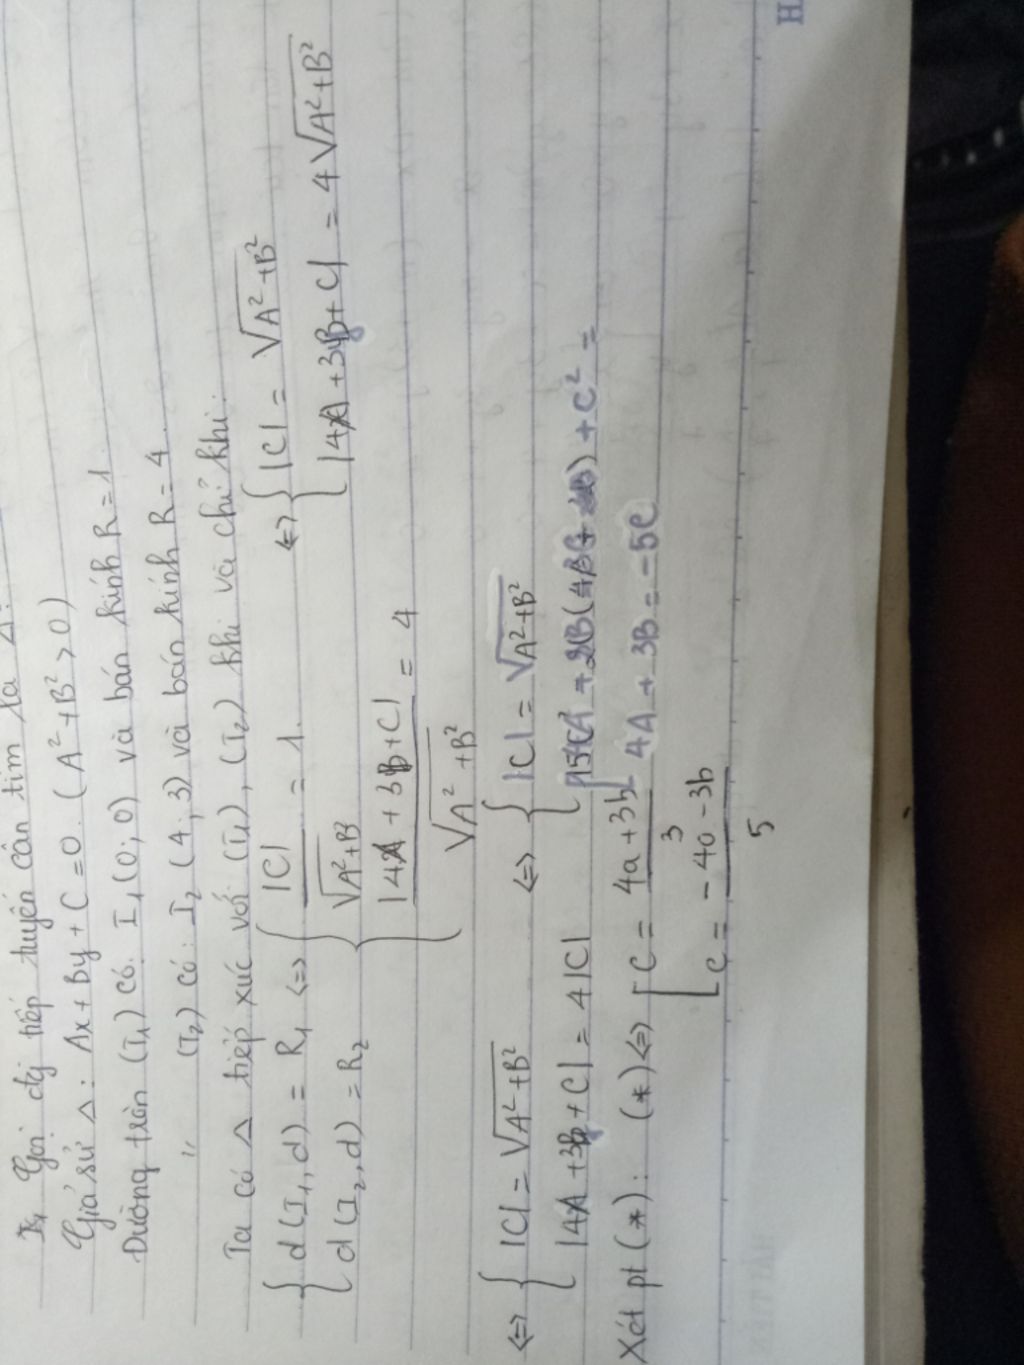 Gọi đt tiếp tuyến cần tìm là Δ.
Giả sử Δ: Ax + By + C = 0. (A² + B² > 0)
Đường tròn (I₁) có: I₁(0; 0) và bán kính R = 1.
" (I₂) có: I₂ (4; 3) và bán kính R = 4.
Ta có Δ tiếp xúc với (I₁), (I₂) khi và chỉ khi:
{ d(I₁, d) = R₁ <=> { |C| / √A²+B² = 1. <=> { |C| = √A²+B²
d(I₂, d) = R₂ |4A + 3B + C| / √A²+B² = 4 |4A + 3B + C| = 4√A²+B²
<=> { |C| = √A²+B² <=> { |C| = √A²+B²
|4A + 3B + C| = 4|C| + C² =
Xét pt (*): (*) <=> [ C = 4a + 3b / 3 4A + 3B = -5C
C = -4a - 3b / 5
H